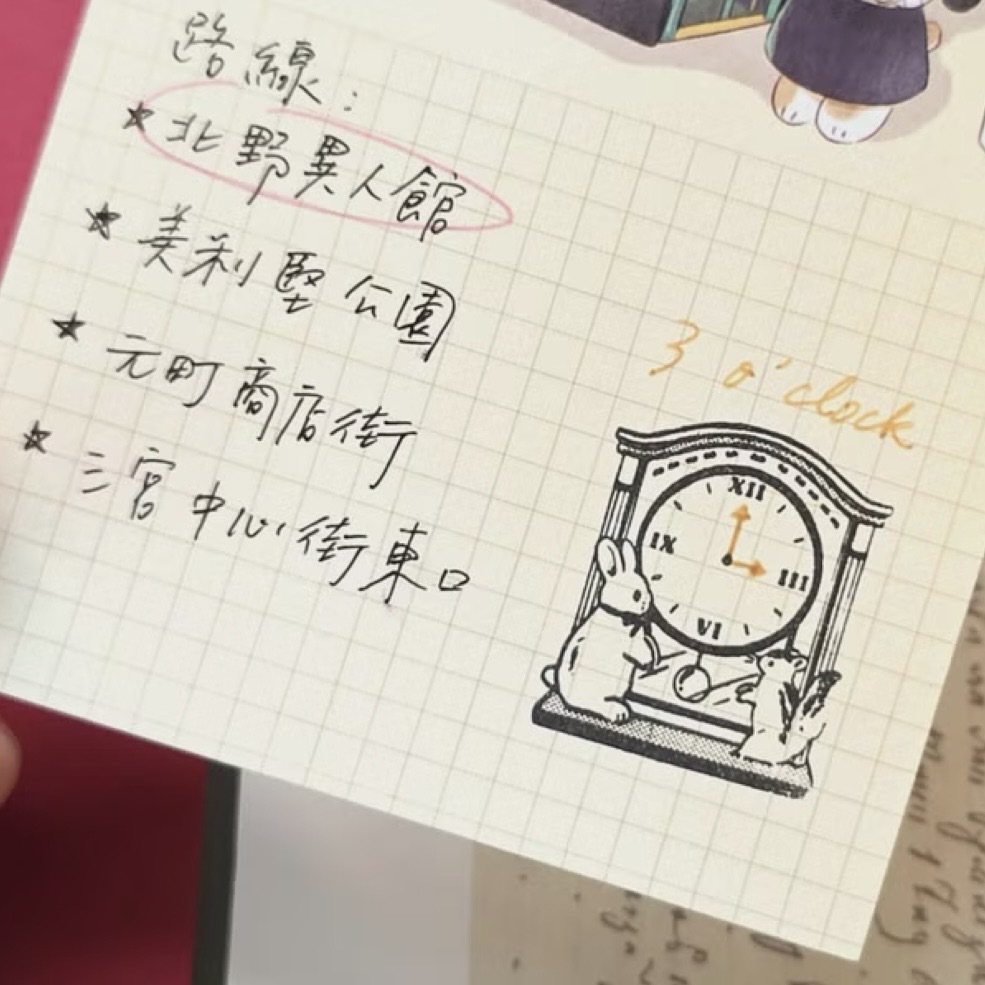 路線:
★北野異人館
★美利堅公園
★元町商店街
★三宮中心街東口
3 o'clock
XII
IX
III
VI